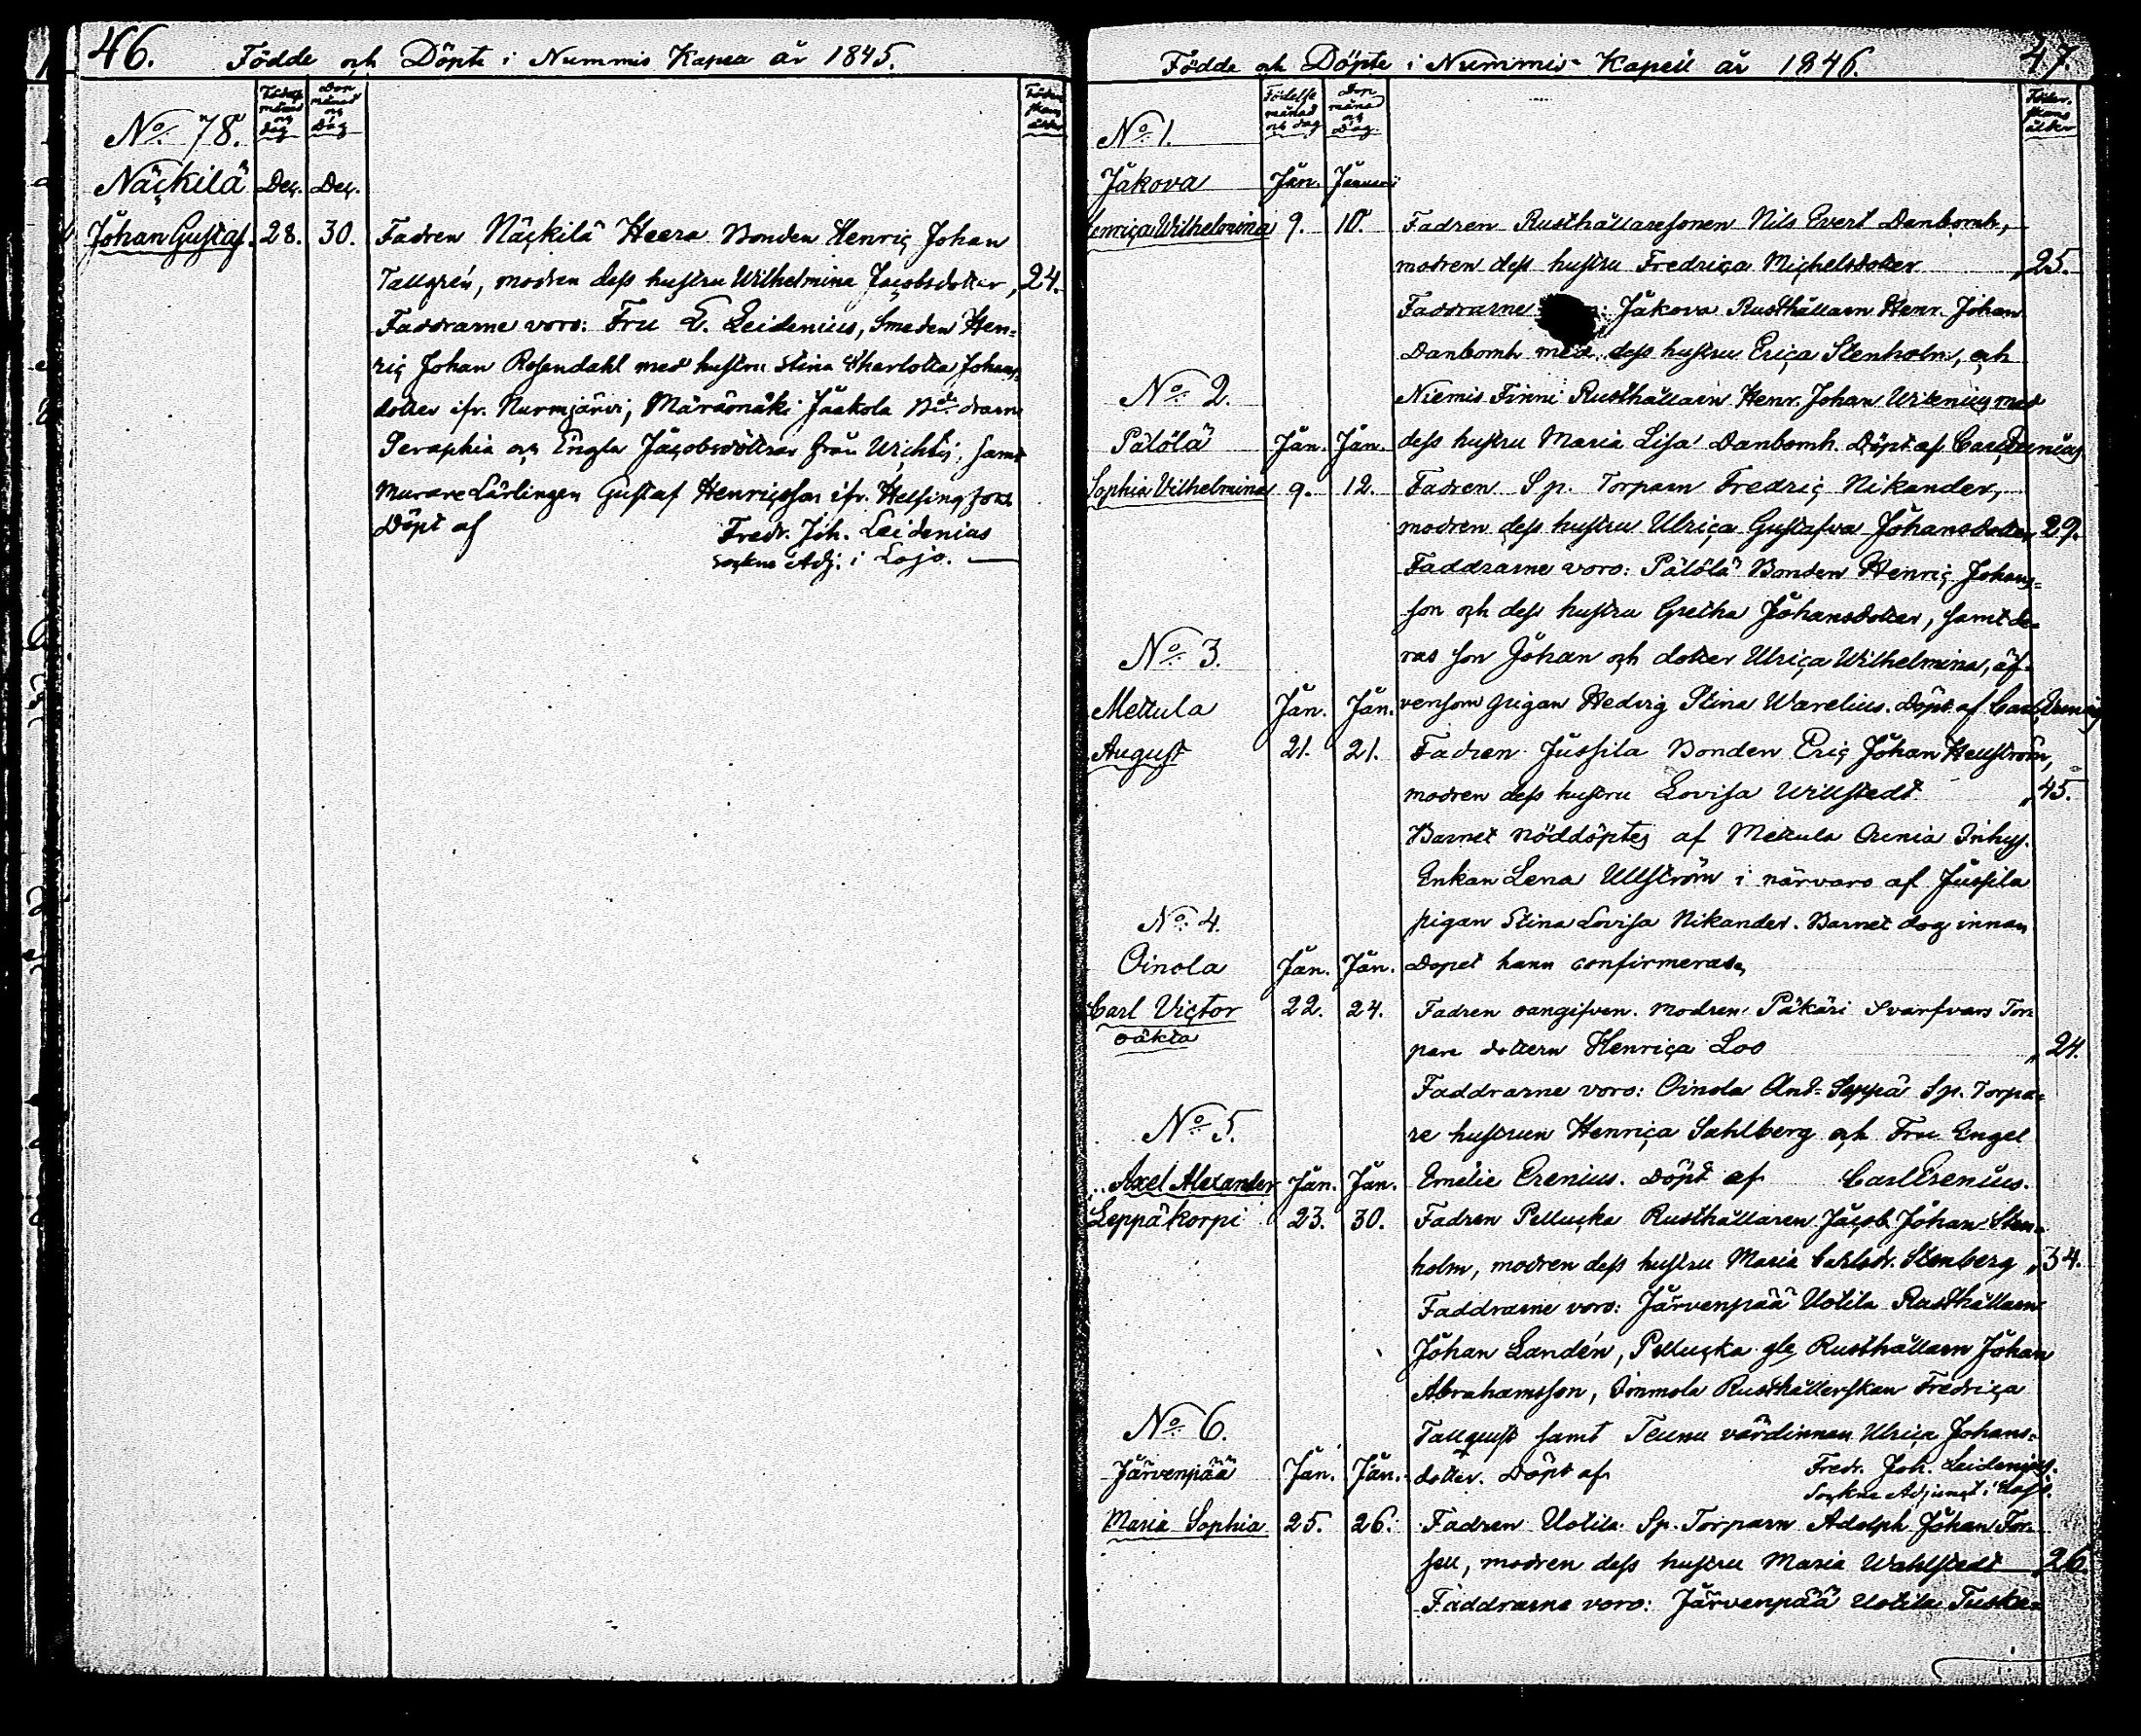 46.
Födde och Döpte i Nummis Kapea år 1845.
Födelse månad och dag
Dop månad och Dag
Föderskans ålder
No. 78.
Näckilä Dec. Dec.
Johan Gustaf. 28. 30. Fadren Näckilä Heera Bonden Henric Johan
Tallgrén, modren dess hustru Wilhelmina Jacobsdotter, 24.
Faddrarne voro: Fru E. Leidenius, Smeden Hen-
ric Johan Rosendahl med hustru Stina Charlotta Johans-
dotter ifr. Nurmjärvi, Jaakola
Seraphia och Engla Jacobsdöttrar från Wichtis, samt
Murare Lärlingen Gustaf Henricsson ifr. Helsingfors
Döpt af Fredr. Joh. Leidenius
Sockne Adj. i Lojo.
47.
Födde och Döpte i Nummis Kapell år 1846.
Födelse månad och dag
Dop månad och Dag.
Föderskans ålder
No. 1.
Jakova Jan. Januarii
Henrica Wilhelmina 9. 10. Fadren Rusthållaresonen Nils Evert Danbomh,
modren dess hustru Fredrica Michelsdotter 25.
Faddrarne : Jakova Rusthållarn Henr. Johan
Danbomh med dess hustru Erica Stenholm, och
No. 2.
Niemis Finni Rusthållarn Henr. Johan Witenius med
Pälölä Jan. Jan. dess hustru Maria Lisa Danbomh. Döpt af Carl Prenius
Sophia Vilhelmina 9. 12. Fadren Sp. Torparn Fredric Nikander,
modren dess hustru Ulrica Gustafva Johansdotter 29.
Faddrarne voro: Pälölä Bonden Henric Johans-
son och dess hustru Gretha Johansdotter, samt de-
No. 3.
ras son Johan och dotter Ulrica Wilhelmina, äf-
Mettula Jan. Jan. vensom pigan Hedvig Stina Warelius. Döpt af Carl Prenius
August 21. 21. Fadren Jussila Bonden Eric Johan Hellström,
modren dess hustru Lovisa Willstedt 45.
Barnet nöddöptes af Mettula Inhys.
Enkan Lena Ullström i närvaro af Jussila
No. 4.
pigan Stina Lovisa Nikander. Barnet dog innan
Oinola Jan. Jan. Dopet hann confirmeras
Carl Victor 22. 24. Fadren oangifven. Modren: Päkäri Svarfvars Tor-
oäkta
pare dottern Henrica Loo 24.
Faddrarne voro: Oinola Ant-Seppä Sp. Torpa-
No. 5.
re hustrun Henrica Sahlberg och Fru Engel
Axel Alexander Jan. Jan. Emelie Prenius. Döpt af Carl Prenius.
Leppäkorpi 23. 30. Fadren Pellucka Rusthållaren Jacob Johan Sten-
holm, modren dess hustru Maria Carlsdr. Stenberg 34.
Faddrarne voro: Järvenpää Uotila Rusthållarn
Johan Landén, Pellucka gle Rusthållarn Johan
Abrahamsson, Rusthållerskan Fredrica
No. 6.
Tallquist samt Teunu värdinnan Ulrica Johans-
Järvenpää Jan. Jan. dotter. Döpt af Fredr. Joh. Leidenius.
Sockne Adjunct i Lojo.
Maria Sophia 25. 26. Fadren Uotila Sp. Torparn Adolph Johan For-
sell, modren dess hustru Maria Wahlstedt 26.
Faddrarne voro: Järvenpää Uotila Tuska-